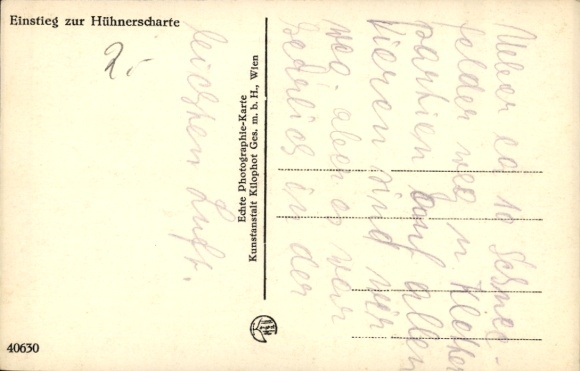 Einstieg zur Hühnerscharte
2.-
Ueber ca 10 Schnee-
felder weg u. Kletter
partien auf allen
Vieren sind wir
weg. aber es war
in der
Luft.
Echte Photographie-Karte
Kunstanstalt Kilophot Ges. m. b. H., Wien
40630